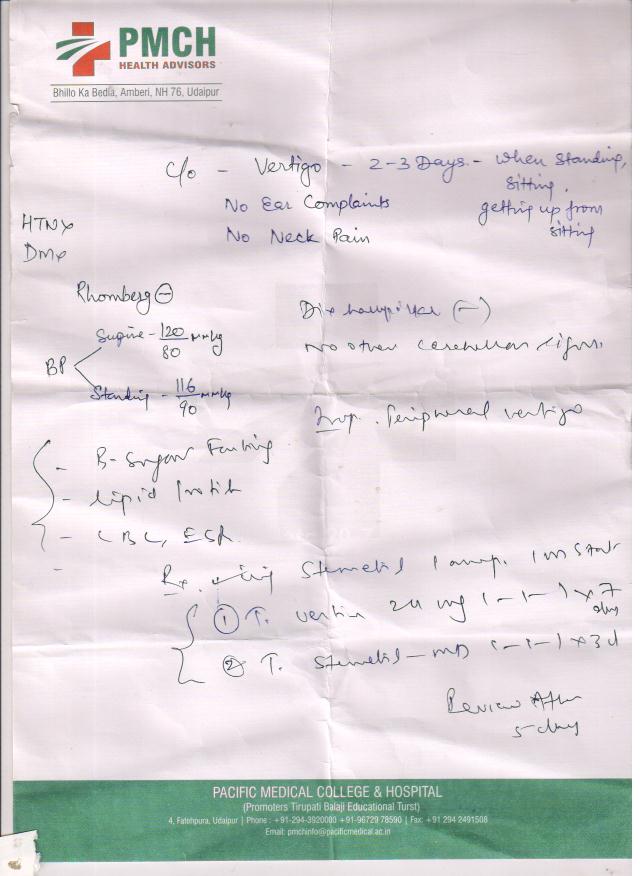 PMCH
HEALTH ADVISORS
Bhillo Ka Bedla, Amberi, NH 76, Udaipur
c/o - Vertigo - 2-3 Days. - When Standing,
Sitting.
No Ear Complaints getting up from
HTNx No Neck Pain sitting
DMx
Rhomberg ⊖
Dix hallpike (-)
Supine - 120/80 mmHg
No other cerebellar signs.
BP
Standing - 116/90 mmHg
Imp. Peripheral vertigo
- B-Sugar Fasting
- lipid Profile
- CBC, ESR
-
Rx. Inj Stemetil 1 amp. IM Stat
① T. vertin 24 mg 1-1-1 x 7 day
② T. Stemetil-MD 1-1-1 x 3d
Review After
5 day
PACIFIC MEDICAL COLLEGE & HOSPITAL
(Promoters Tirupati Balaji Educational Turst)
4, Fatehpura, Udaipur | Phone : +91-294-3920000 +91-96729 78590 | Fax: +91 294 2491508
Email: pmchinfo@pacificmedical.ac.in